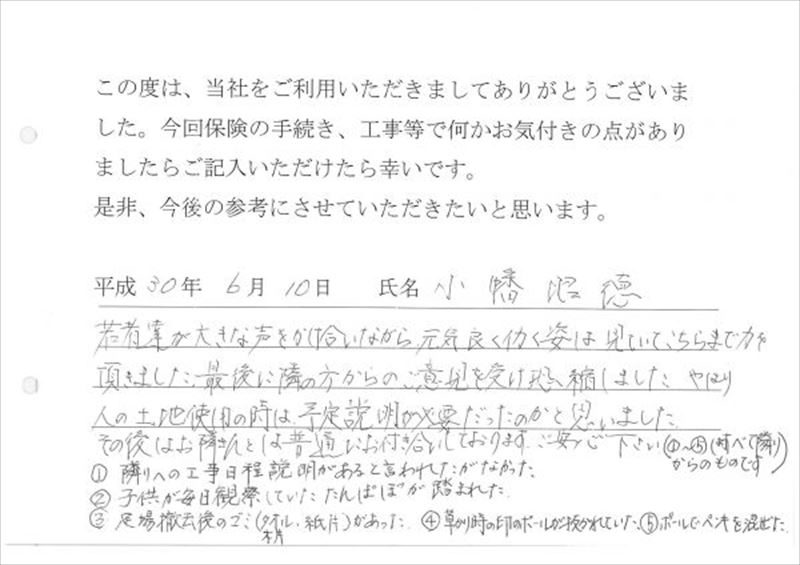 この度は、当社をご利用いただきましてありがとうございま
した。今回保険の手続き、工事等で何かお気付きの点があり
ましたらご記入いただけたら幸いです。
是非、今後の参考にさせていただきたいと思います。
平成 30年 6月 10日 氏名 小幡 德
若者達が大きな声をかけ合いながら、元気良く働く姿は見ていてこちらまで力を
頂きました。最後に隣の方からのご意見を受け恐縮しました。やはり
人の土地使用の時は、予定説明が必要だったのかと思いました。
その後はお隣さんとは普通にお付き合いしております。ご安心下さい(①〜⑤(すべて隣り)
からのものです)
① 隣りへの工事日程説明があると言われしたがなかった
② 子供が毎日観察していたたんぽぽが踏まれた
③ 足場撤去後のゴミ(タオル、紙片)があった. ④草かり時の印のポールが抜かれていた. ⑤ポールでペンキを混ぜた.
木片